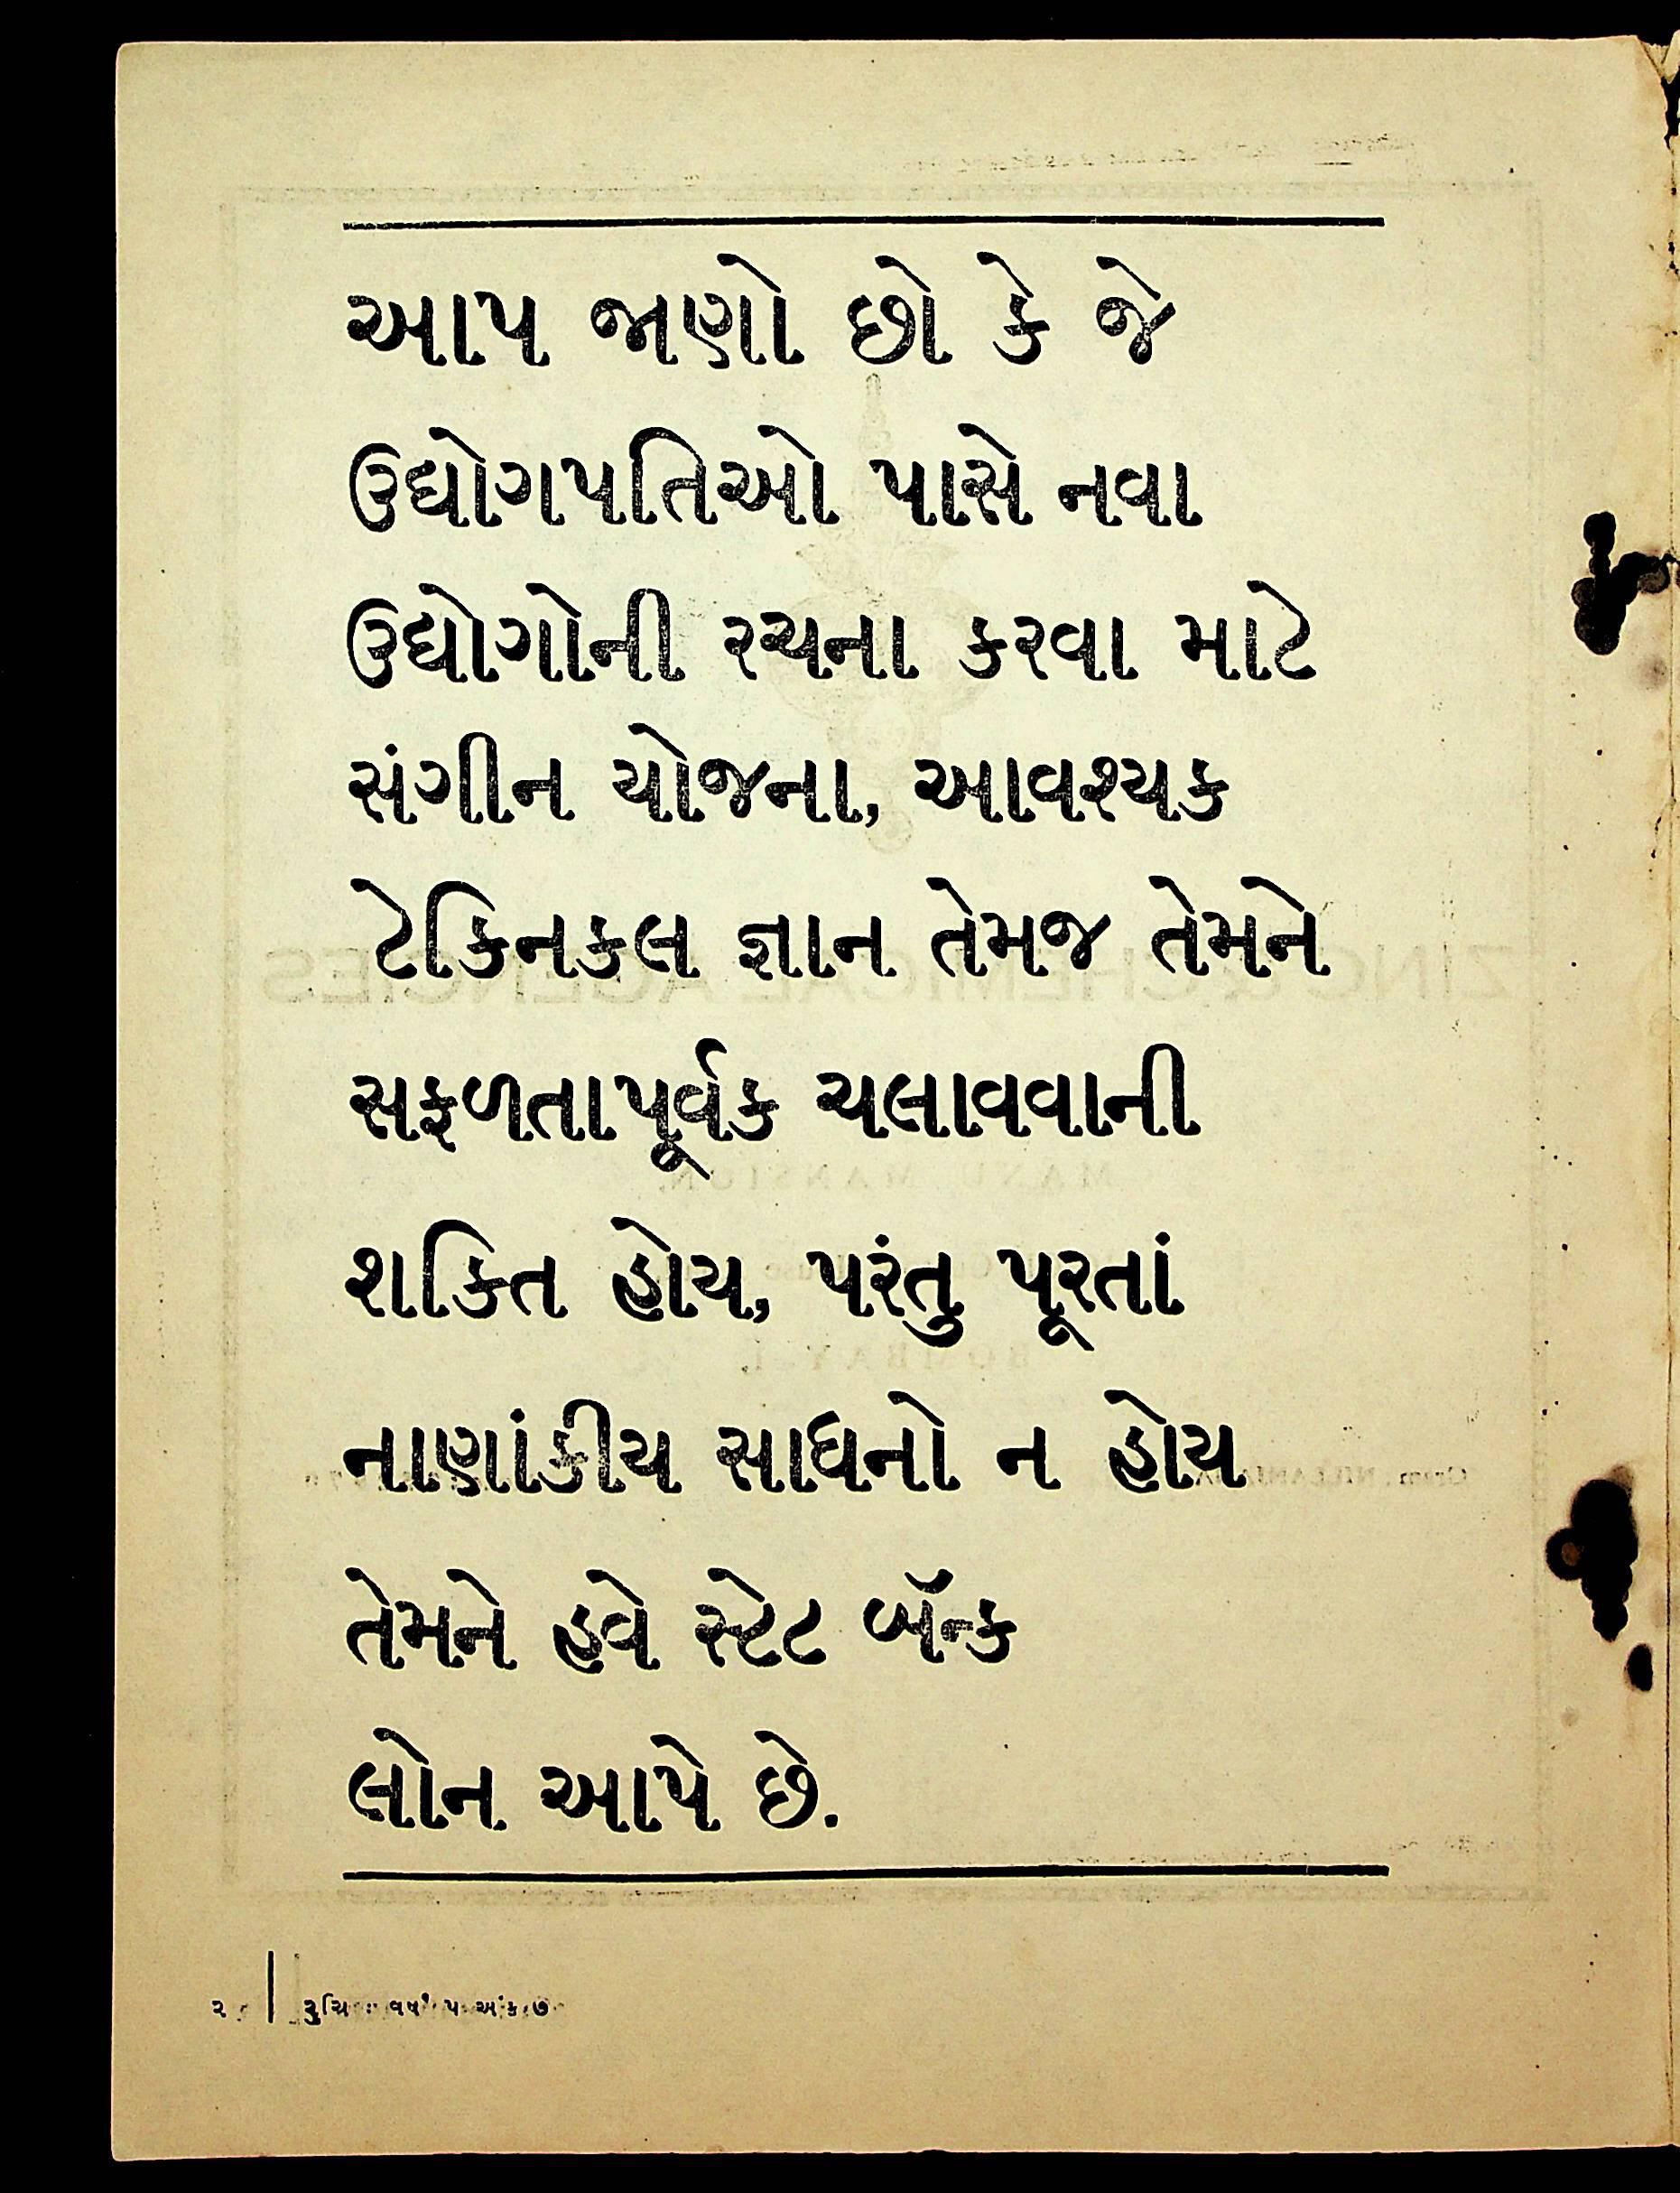 આપ જાણો છો કે જે
ઉદ્યોગપતિઓ પાસે નવા
ઉદ્યોગોની રચના કરવા માટે
સંગીન યોજના, આવશ્યક
ટેકિનકલ જ્ઞાન તેમજ તેમને
સફળતાપૂર્વક ચલાવવાની
શક્તિ હોય, પરંતુ પૂરતાં
નાણાંકીય સાધનો ન હોય
તેમને હવે સ્ટેટ બૅન્ક
લોન આપે છે.
૨ | રુચિ : વર્ષ ૫ અંક ૭